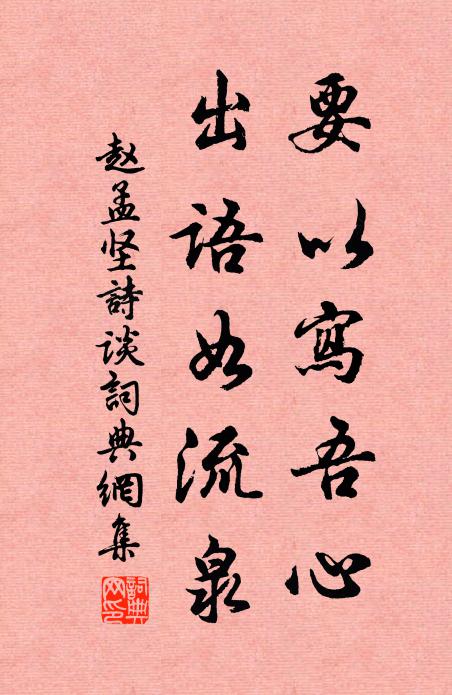 要以寫吾心
出語如流泉
赵孟坚詩谈詞典網集
詞典网印